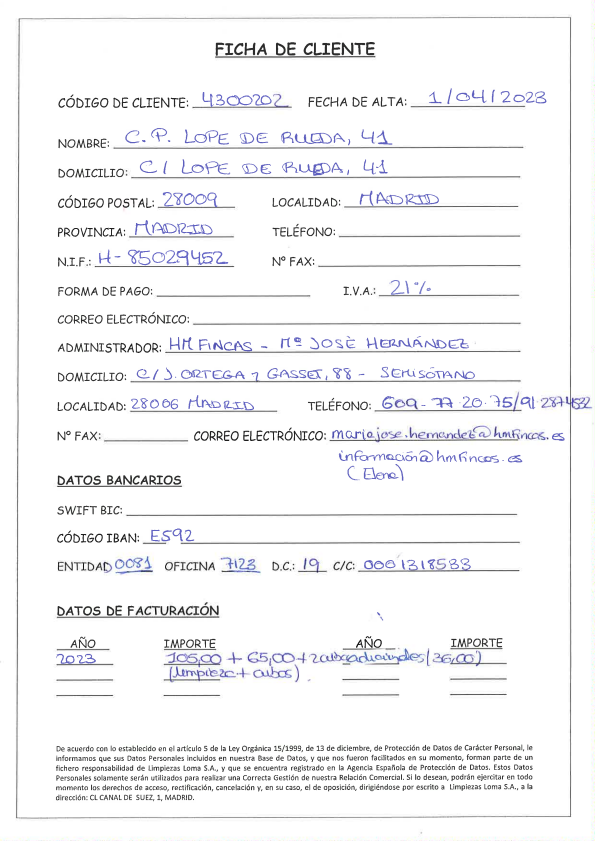 FICHA DE CLIENTE
CÓDIGO DE CLIENTE: 4300202 FECHA DE ALTA: 1/04/2023
NOMBRE: C.P. LOPE DE RUEDA, 41
DOMICILIO: C/ LOPE DE RUEDA, 41
CÓDIGO POSTAL: 28009 LOCALIDAD: MADRID
PROVINCIA: MADRID TELÉFONO:
N.I.F.: H-85029452 Nº FAX:
FORMA DE PAGO: I.V.A.: 21%
CORREO ELECTRÓNICO:
ADMINISTRADOR: HM FINCAS - Mª JOSÉ HERNÁNDEZ
DOMICILIO: C/ J. ORTEGA Y GASSET, 88 - SEMISÓTANO
LOCALIDAD: 28006 MADRID TELÉFONO: 609-77.20.75/91.2874532
Nº FAX: CORREO ELECTRÓNICO: mariajose.hernandez@hmfincas.es
información@hmfincas.es
(Elena)
DATOS BANCARIOS
SWIFT BIC:
CÓDIGO IBAN: ES92
ENTIDAD 0081 OFICINA 7123 D.C.: 19 C/C: 0001318533
DATOS DE FACTURACIÓN
AÑO IMPORTE AÑO IMPORTE
2023 105,00 + 65,00 + 2 cubos adicionales (36,00)
(limpieza + cubos)
De acuerdo con lo establecido en el artículo 5 de la Ley Orgánica 15/1999, de 13 de diciembre, de Protección de Datos de Carácter Personal, le
informamos que sus Datos Personales incluidos en nuestra Base de Datos, y que nos fueron facilitados en su momento, forman parte de un
fichero responsabilidad de Limpiezas Loma S.A., y que se encuentra registrado en la Agencia Española de Protección de Datos. Estos Datos
Personales solamente serán utilizados para realizar una Correcta Gestión de nuestra Relación Comercial. Si lo desean, podrán ejercitar en todo
momento los derechos de acceso, rectificación, cancelación y, en su caso, el de oposición, dirigiéndose por escrito a Limpiezas Loma S.A., a la
dirección: CL CANAL DE SUEZ, 1, MADRID.